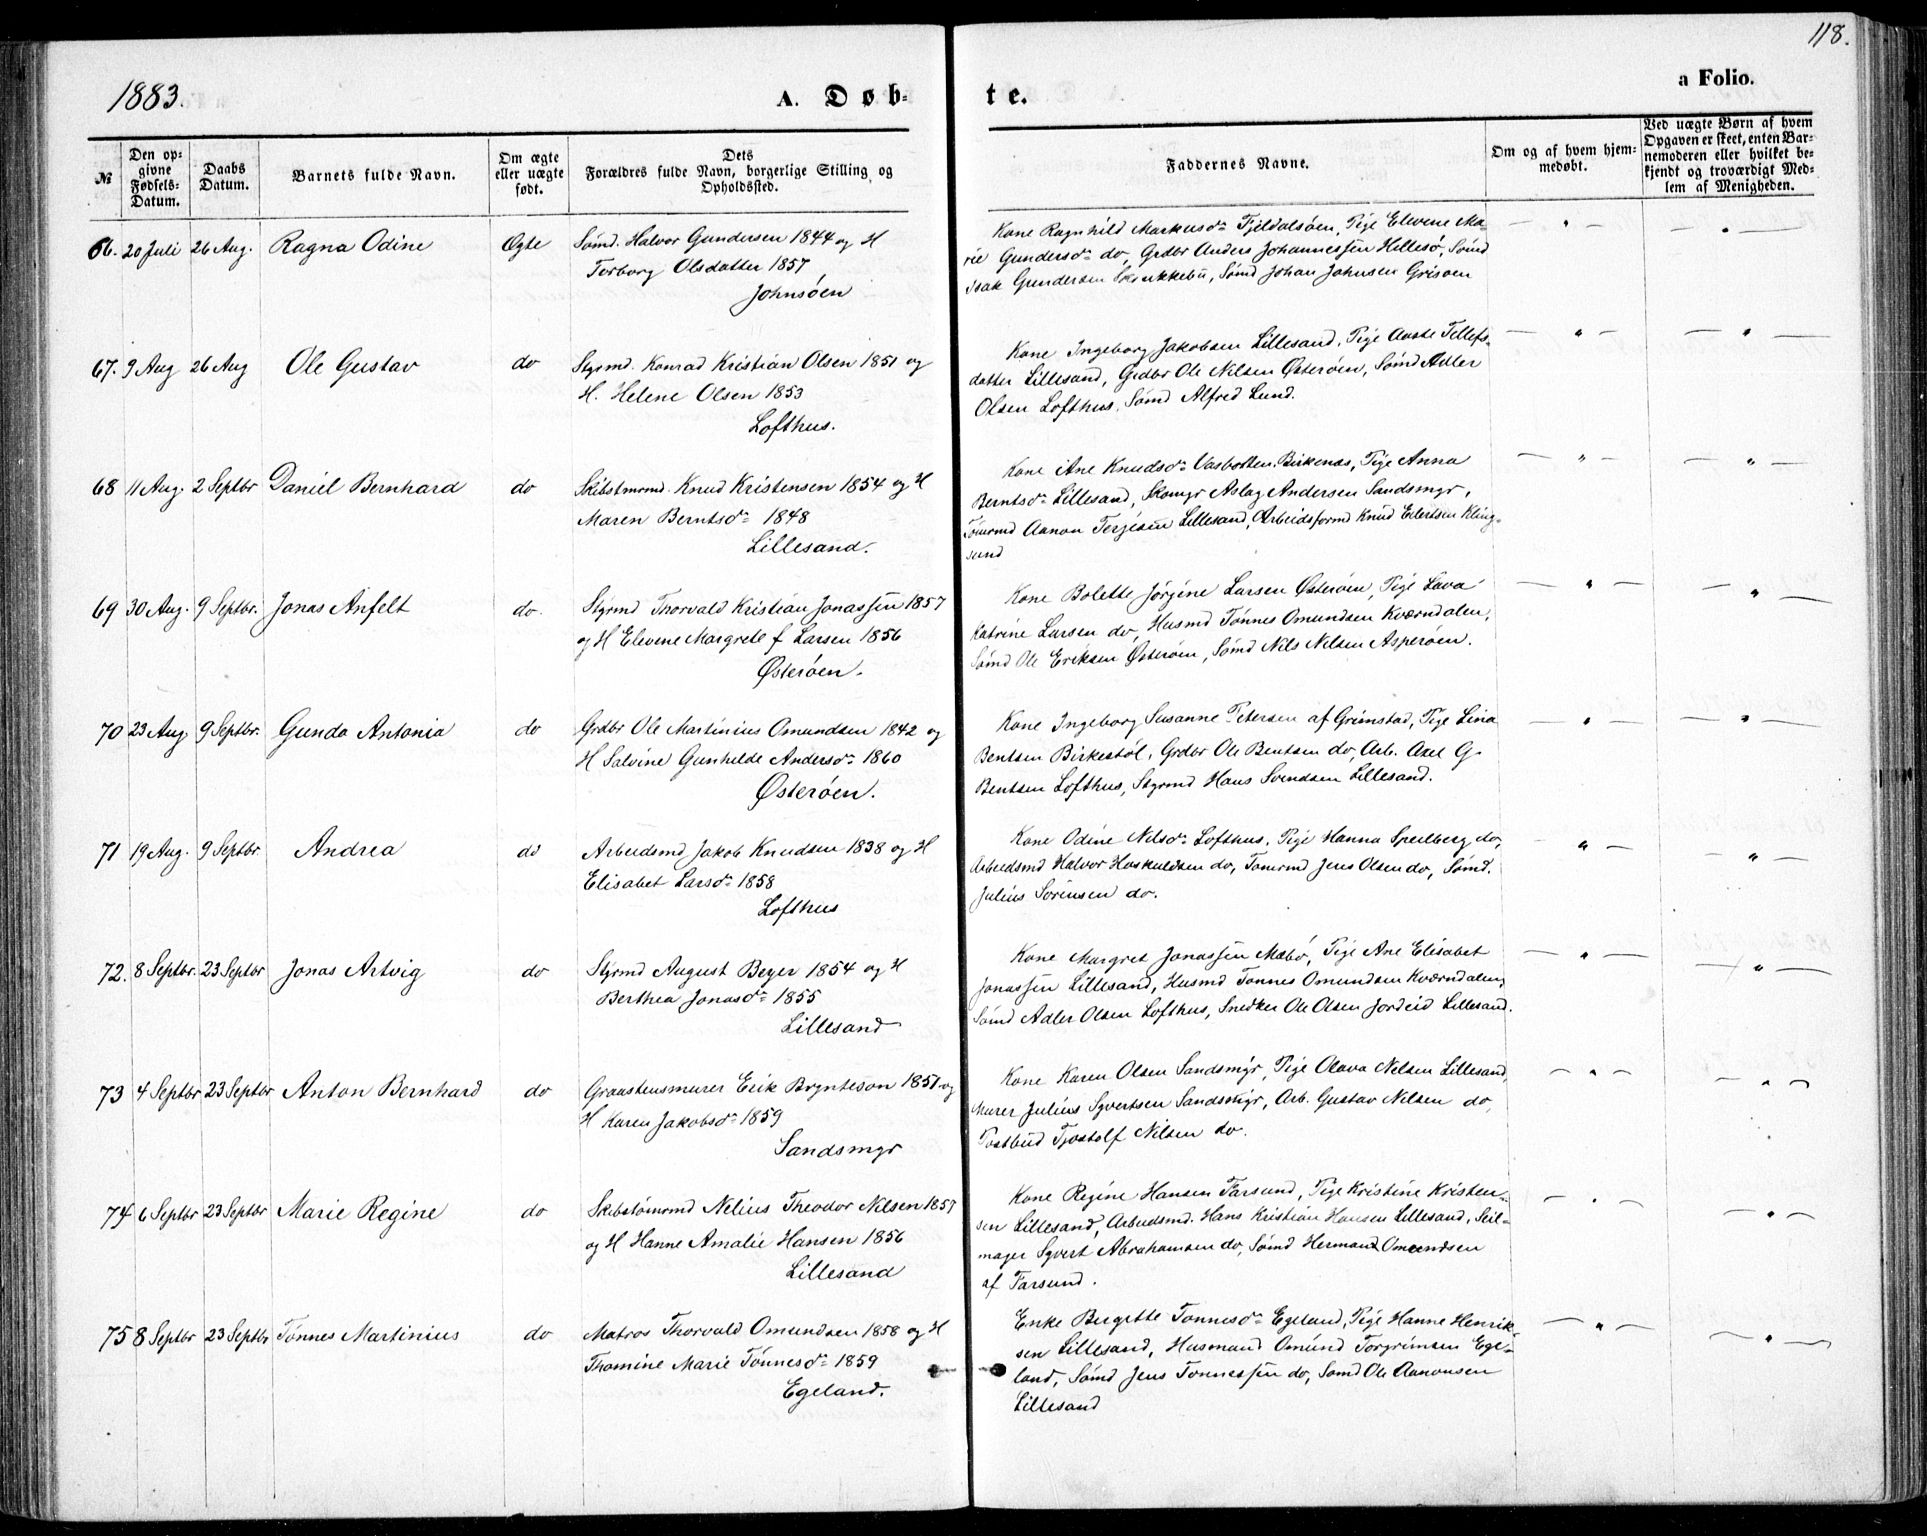 118.
1883.
A. Døb-
te.
a Folio.
№
Den op-
givne
Fødsels-
Datum.
Daabs
Datum.
Barnets fulde Navn.
Om ægte
eller uægte
født.
Dets
Forældres fulde Navn, borgerlige Stilling og
Opholdssted.
Faddernes Navne.
Om og af hvem hjem-
medøbt.
Ved uægte Børn af hvem
Opgaven er skeet, enten Bar-
nemoderen eller hvilket be-
kjendt og troværdigt Med-
lem af Menigheden.
66. 20 Juli 26 Aug. Ragna Odine Ægte Sømd. Halvor Gundersen 1844 og H
Torborg Olsdatter 1857
Johnsöen
Kone Ragnhild Markusdr Fjeldalsöen, Pige Elevene Ma-
rie Gundersdr do, Grdbr Anders Johannessen Hellesö, Sømd
Isak Gundersen, Sømd Johan Johnsen Grisöen
67. 9 Aug 26 Aug Ole Gustav do Styrmd. Konrad Kristian Olsen 1851 og
H. Helene Olsen 1853
Lofthus.
Kone Ingeborg Jakobsen Lillesand, Pige Aaste Tellefs-
datter Lillesand, Grdbr Ole Nilsen Østeröen, Sømd Adler
Olsen Lofthus, Sømd Alfred Lund.
68 11 Aug. 2 Septbr Daniel Bernhard do Skibstmrmd. Knud Kristensen 1854 og H
Maren Berntsdr 1848
Lillesand.
Kone Ane Knudsdr Vasbotten Birkenæs, Pige Anna
Berntsdr Lillesand, Skomgr Aslag Andersen Sandsmgr,
Tömrmd Aanon Terjesen Lillesand, Arbeidsformd Knud Eilertsen Kling-
sund
69 30 Aug. 9 Septbr. Jonas Anfelt do. Styrmd Thorvald Kristian Jonassen 1857
og H Elevene Margrete f Larsen 1856
Østeröen.
Kone Bolette Jörgine Larsen Østeröen, Pige Lava
Katrine Larsen do, Husmd Tönnes Omundsen Kværndalen,
Sømd Ole Eriksen Østeröen, Sømd Nils Nilsen Asperöen.
70 23 Aug 9 Septbr. Gunda Antonia do Grdbr Ole Martinius Omundsen 1842 og
H Salvine Gunhilde Andersdr 1860
Østeröen.
Kone Ingeborg Susanne Petersen af Grimstad, Pige Lina
Bentsen Birkestöl, Grdbr Ole Bentsen do, Arb. Axel G.
Bentsen Lofthus, Styrmd Hans Svendsen Lillesand.
71 19 Aug. 9 Septbr. Andrea do Arbeidsmd Jakob Knudsen 1838 og H
Elisabet Larsdr 1858
Lofthus
Kone Odine Nilsdr Lofthus, Pige Hanna Speilberg do,
Arbeidsmd Halvor Haskuldsen do, Tömrmd Jens Olsen do, Sømd.
Julius Sörensen do.
72. 8 Septbr. 23 Septbr Jonas Artvig do Styrmd August Beyer 1854 og H
Berthea Jonasdr 1855
Lillesand
Kone Margret Jonassen Mæbö, Pige Ane Elisabet
Jonassen Lillesand, Husmd Tönnes Omundsen Kværndalen,
Sømd Adler Olsen Lofthus, Snedker Ole Olsen Jordeid Lillesand.
73 4 Septbr 23 Septbr Anton Bernhard do Graastensmurer Erik Brynteson 1851 og
H Karen Jakobsdr 1859
Sandsmgr
Kone Karen Olsen Sandsmgr, Pige Olava Nilsen Lillesand,
Murer Julius Syvertsen Sandsmgr, Arb. Gustav Nilsen do,
Postbud Tjostolf Nilsen do.
74 6 Septbr 23 Septbr Marie Regine do Skibstömrmd Nelius Theodor Nilsen 1857
og H Hanne Amalie Hansen 1856
Lillesand
Kone Regine Hansen Farsund, Pige Kristine Kristen-
sen Lillesand, Arbeidsmd. Hans Kristian Hansen Lillesand, Seil-
mager Syvert Abrahamsen do, Sømd Herman Omundsen
af Farsund.
75 8 Septbr 23 Septbr Tönnes Martinius do Matros Thorvald Omundsen 1858 og H
Thomine Marie Tönnesdr 1859
Egeland.
Enke Birgitte Tönnesdr Egeland, Pige Hanne Henrik-
sen Lillesand, Husmand Omund Torgrimsen Ege-
land, Sømd Jens Tönnessen do, Sømd Ole Aanonsen
Lillesand